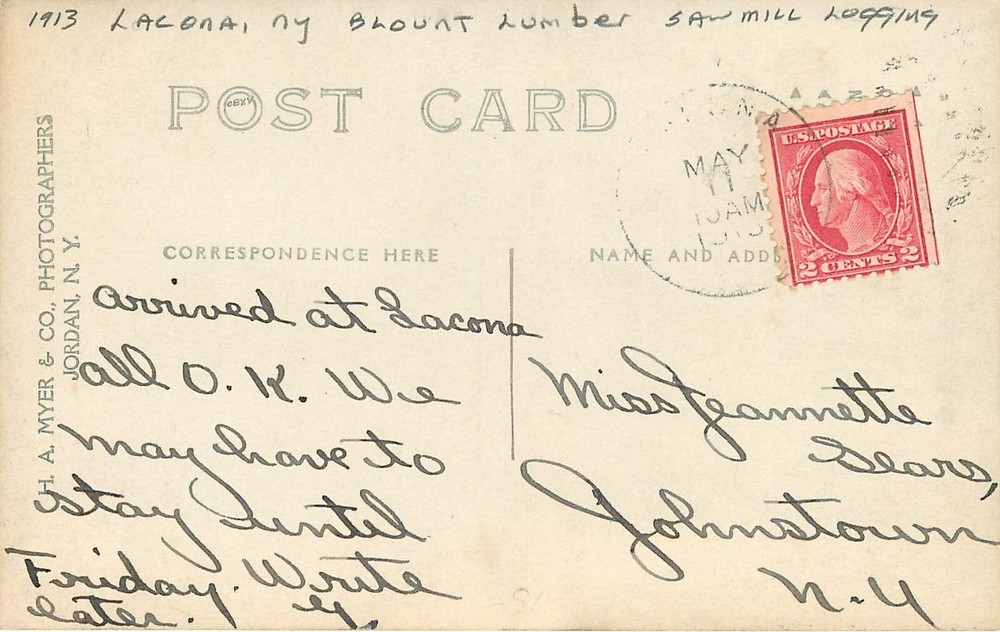 1913 LACONA, NY BLOUNT LUMBER SAWMILL LOGGING
POST CARD
H. A. MYER & CO., PHOTOGRAPHERS
JORDAN, N. Y.
MAY
11
10AM
U.S. POSTAGE
2 CENTS 2
CORRESPONDENCE HERE
NAME AND ADD
arrived at Lacona
all O. K. We
may have to
stay until
Friday. Write
later. Y.
Miss Jeannette
Sears,
Johnstown
N-Y